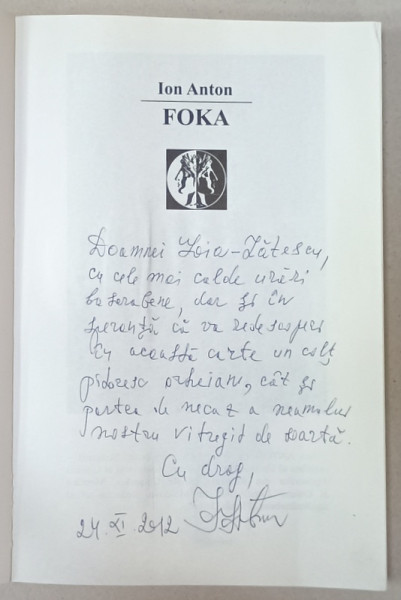 Ion Anton
FOKA
Doamnei Zoia-Zătescu,
cu cele mai calde urări
basarabene, dar și în
speranță că va redescoperi
cu această carte un colț
pitoresc orheian, cât și
partea de necaz a neamului
nostru vitregit de soartă.
Cu drag,
24. XI. 2012